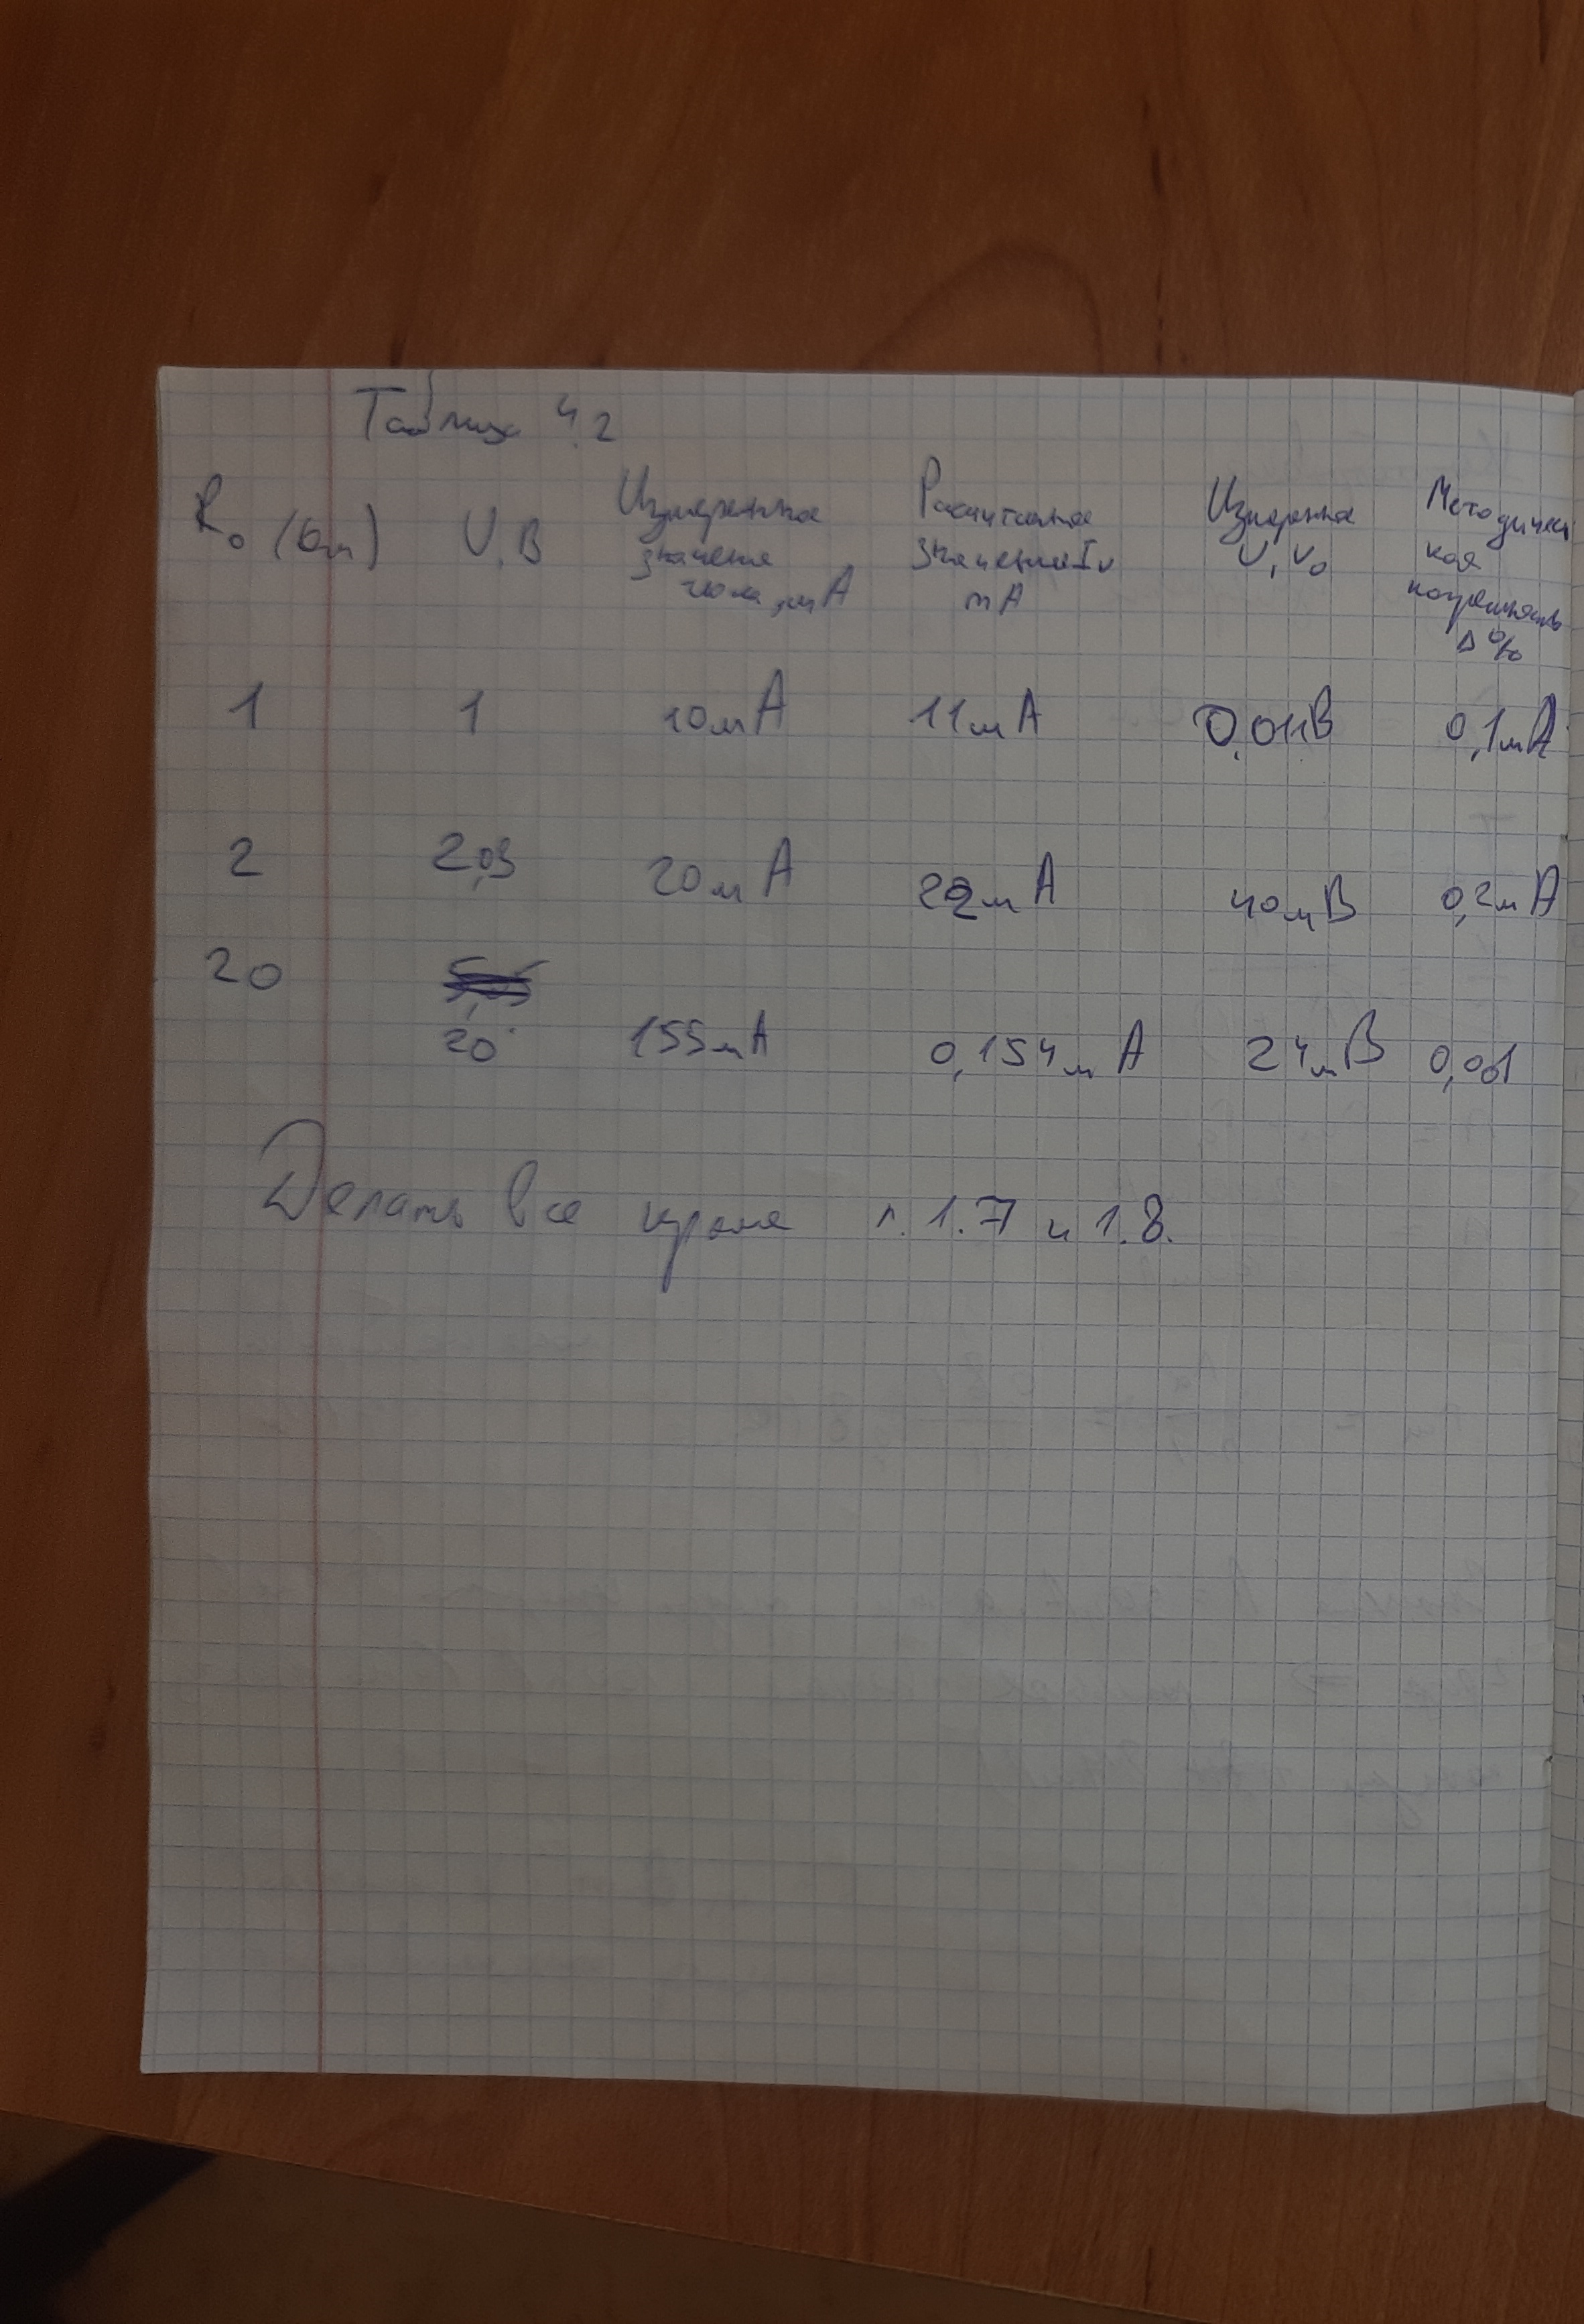 Таблица 4.2
R₀ (Ом) U, В Измеренное значение тока, мА Расчитанное значение Iv mA Измеренное U, V₀ Методическая погрешность Δ%
1 1 10мА 11мА 0,011В 0,1мА
2 2,03 20мА 22мА 40мВ 0,2мА
20
20 155мА 0,154мА 24мВ 0,001
Делать все кроме п. 1.7 и 1.8.